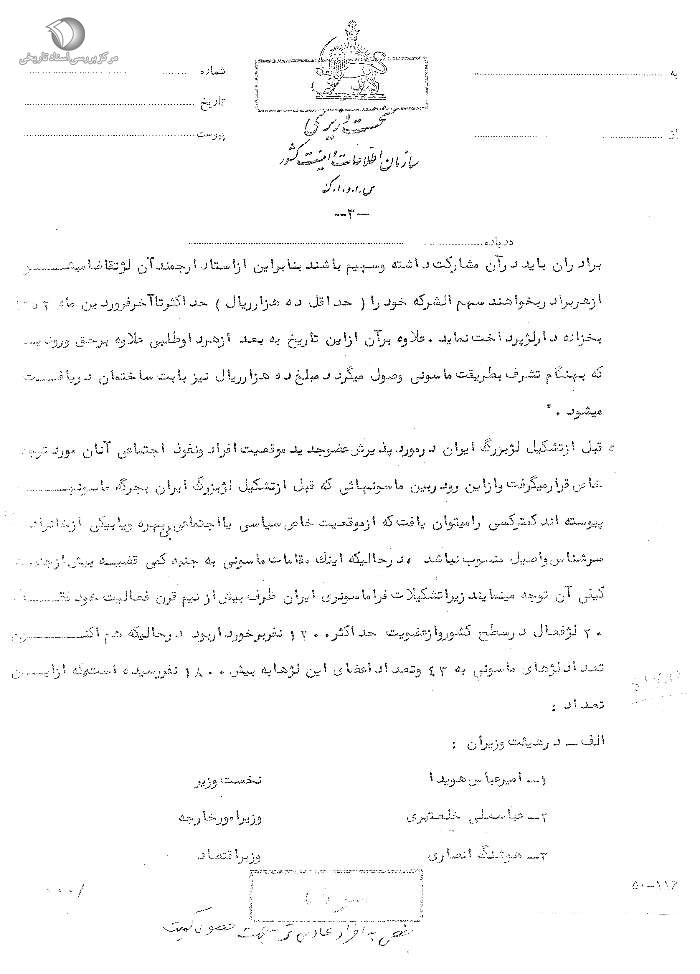 مرکز بررسی اسناد تاریخی
به
شماره
تاریخ
از
پیوست
نخست وزیری
سازمان اطلاعات و امنیت کشور
س.ا.و.ا.ک
-۳-
درباره
برادران باید درآن مشارکت داشته وسهیم باشند بنابراین ازاستاد ارجمند آن لژتقاضا میشـــود
ازهربرادر بخواهند سهم الشرکه خود را ( حداقل ده هزارریال ) حداکثرتاآخرفروردین ماه
بخزانه دارلژپرداخت نماید . علاوه برآن ازاین تاریخ به بعد ازهرداوطلبی علاوه برحق ورودیـه
که بهنگام تشرف بطریقت ماسونی وصول میگردد مبلغ ده هزارریال نیز بابت ساختمان دریافـــت
میشود . "
قبل ازتشکیل لژبزرگ ایران درمورد پذیرش عضوجدید موقعیت افراد ونفوذ اجتماعی آنان مورد توجه
خاص قرارمیگرفت وازاین رودربین ماسونهائی که قبل ازتشکیل لژبزرگ ایران بجرگه ماسونها
پیوسته اند کمترکسی رامیتوان یافت که ازموقعیت خاص سیاسی یااجتماعی بی بهره ویابیکی ازخانواده
سرشناس واصیل منسوب نباشد . درحالیکه اینک مقامات ماسونی به جنبه کمی قضیه بیش ازجنبه
کیفی آن توجه مینمایند زیراتشکیلات فراماسونری ایران ظرف بیش از نیم قرن فعالیت خود
۲۰ لژفعال درسطح کشوروازعضویت حداکثر ۱۲۰۰ نفربرخوردار بود درحالیکه هم اکنـــون
تعداد لژهای ماسونی به ۴۳ وتعداد اعضای این لژهابه بیش ۱۸۰۰ نفررسیده است که ازایـــن
تعداد :
الف ــ درهیئت وزیران :
۱ــ امیرعباس هویدا نخست وزیر
۲ــ عباسعلی خلعتبری وزیرامورخارجه
۳ــ هوشنگ انصاری وزیراقتصاد
۵۰-۱۱۶
/۰۰۰
سری